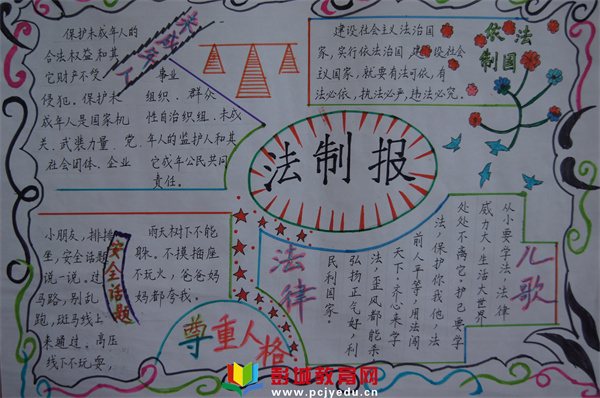 保护未成年人的
合法权益和其
它财产不受
侵犯。保护未
成年人是国家机
关、武装力量、党、
社会团体、企业
事业
组织、群众
性自治组织、未成
年人的监护人和其
它成年公民共同
责任。
未成年人
建设社会主义法治国
家,实行依法治国,建设社会
主义国家,就要有法可依,有
法必依,执法必严,违法必究。
依法
制国
法制报
小朋友,排排
坐,安全话题
说一说。过
马路,别乱
跑,斑马线上
来通过。高压
线下不玩耍,
雨天树下不能
躲。不摸插座
不玩火,爸爸妈
妈都夸我。
安全话题
尊重人格
法律
儿歌
从小要学法,法律
威力大,生活大世界
处处不离它。护己要学
法,保护你我他,法
前人平等,用法闯
天下。齐心来学
法,歪风都能杀
弘扬正气好,利
民利国家。
彭城教育网
www.pcjyedu.cn